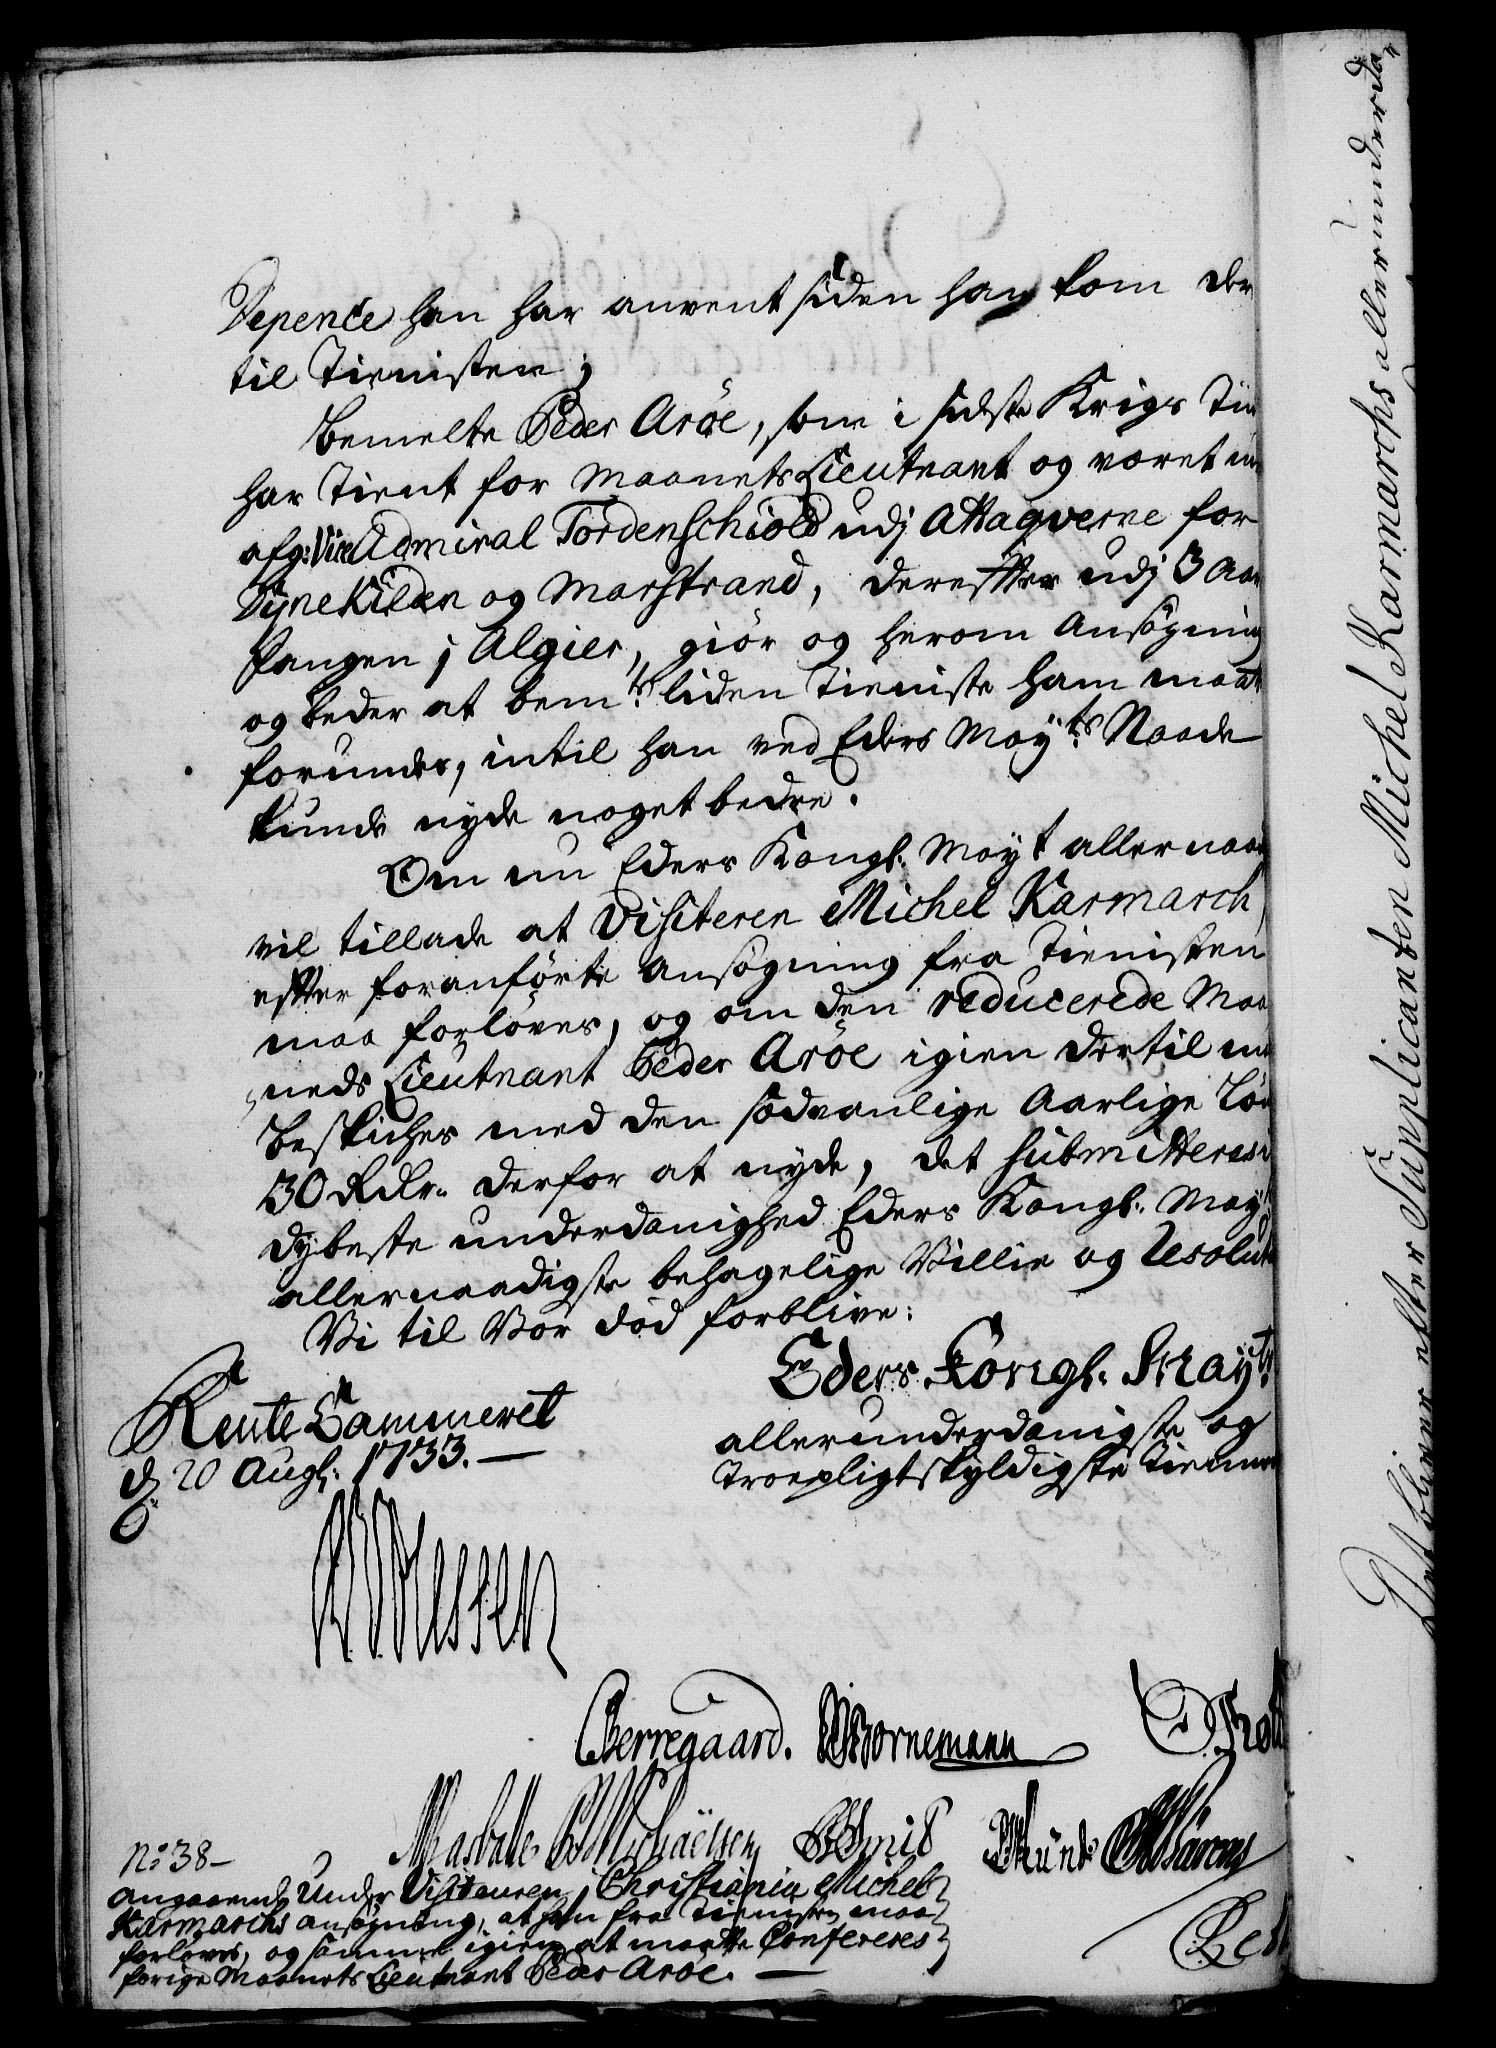 Depence han har anvent siden han kom der
til Tienisten;
Bemelte Peder Aröe, som i sidste Krigs Tiid
har tient for Maanets Lieutnant og været
afg: Vice Admiral Tordenschiold udj Attaqverne for
Dynekilden og Marstrand, derefter udj 3 Aar
fangen j Algier, giör og herom Ansögning
og beder at bem:te liden Tieniste ham maatte
forundes, intil han ved Eders May:ts Naade
kunde nyde noget bedre.
Om nu Eders Kongl: Mayt allernaad
vil tillade at Visiteren Michel Karmarch
efter foranförte Ansögning fra Tienisten
maa forlöves, og om den reducerede Maa
neds Lieutnant Peder Aröe igien dertil maa
beskiches med den sædvanlige Aarlige Lön
30 Rdr. derfor at nyde, det submitteres i
dybeste underdanighed Eders Kongl: May:ts
allernaadigste behagelige Villie og Resolution
Vi til Vor död forblive:
Eders Kongl. May:ts
allerunderdanigste og
Troepligtskyldigste Tienere
Rente Cammeret
d 20 Augl: 1733.
Berregaard. Bornemann
No: 38
Angaaende Under Visiteuren j Christiania Michel
Karmarchs ansögning, at han fra Tienisten maa
forloves, og samme igien at maatte Confereres
forige Maanets Lieutnant Peder Aröe.
Det bliver efter Supplicanten Michel Karmarchs allerunderda